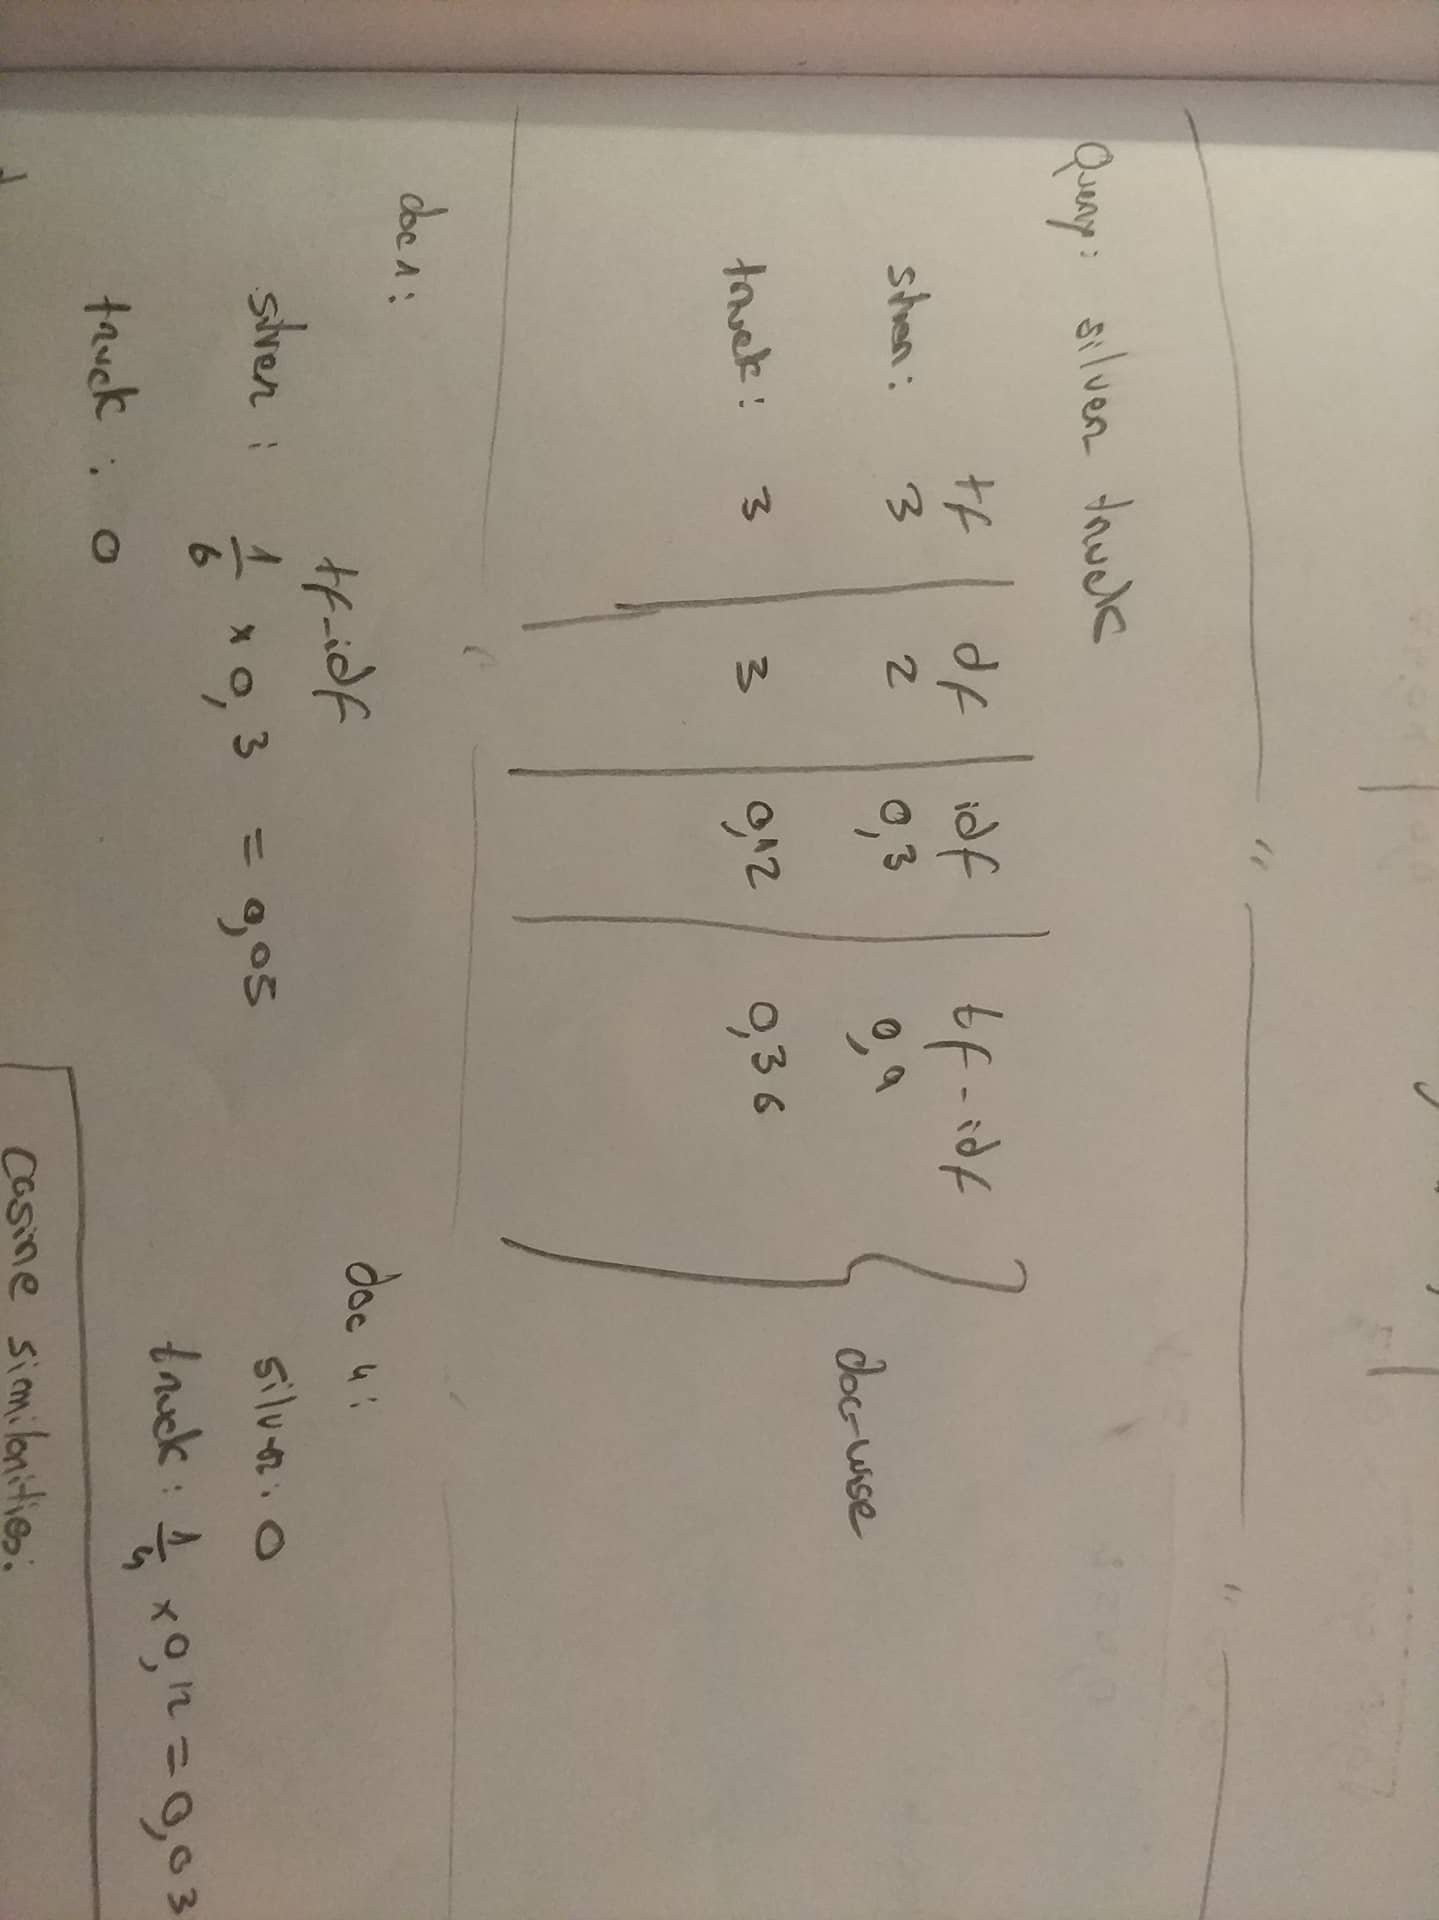 Query: silver truck
tf df idf tf-idf
silver: 3 2 0,3 0,9
truck: 3 3 0,12 0,36
doc-wise
doc 1:
tf-idf
silver: 1/6 x 0,3 = 0,05
truck: 0
doc 4:
silver: 0
truck: 1/4 x 0,12 = 0,03
Cosine similarities: